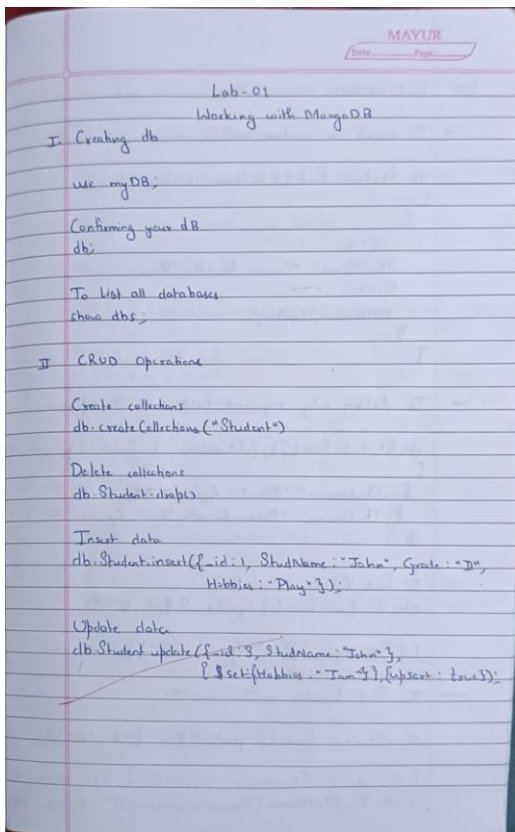 MAYUR
Date Page
Lab-01
Working with MongoDB
I. Creating db
use myDB;
Confirming your dB
db;
To List all databases
show dbs;
II CRUD Operations
Create collections
db.createCollections("Student")
Delete collections
db.Student.drop()
Insert data
db.Student.insert({_id:1, StudName:"John", Grade:"D",
Hobbies:"Play"});
Update data
db Student.update({_id: , StudName:"John"},
{$set:{Hobbies: }},{upsert: true});